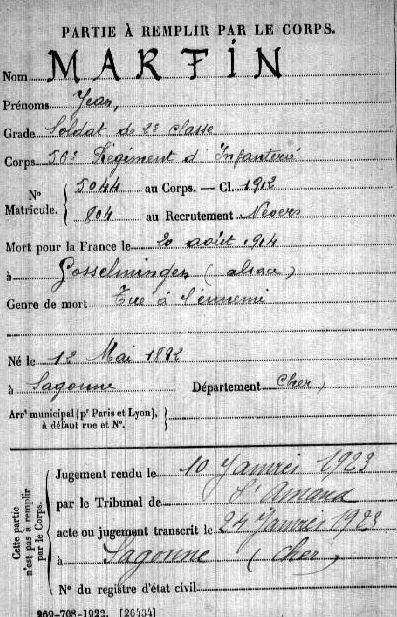 PARTIE À REMPLIR PAR LE CORPS.
Nom MARTIN
Prénoms Jean,
Grade Soldat de 2e classe
Corps Régiment d'Infanterie
No Matricule. { 5044 au Corps. — Cl. 1912
804 au Recrutement Nevers
Mort pour la France le 20 août 1914
à Gosselmingen (alsace)
Genre de mort Tué à l'ennemi
Né le 12 Mai 1892
à Sagonne Département Cher
Arrt municipal (pr Paris et Lyon), à défaut rue et No. }
Cette partie n'est pas à remplir par le Corps. {
Jugement rendu le 10 Janvier 1923
par le Tribunal de St Amand
acte ou jugement transcrit le 24 Janvier 1923
à Sagonne (Cher)
No du registre d'état civil
[26434]